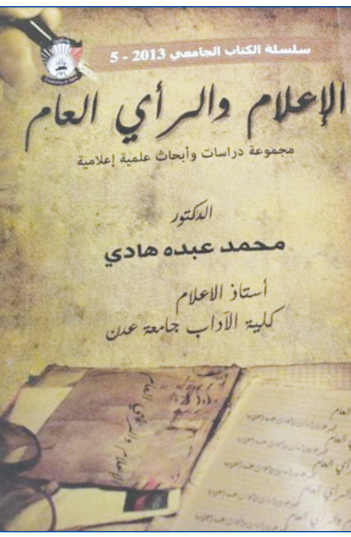 سلسلة الكتاب الجامعي 2013 - 5
الإعلام والرأي العام
مجموعة دراسات وأبحاث علمية إعلامية
الدكتور
محمد عبده هادي
أستاذ الاعلام
كلية الآداب جامعة عدن